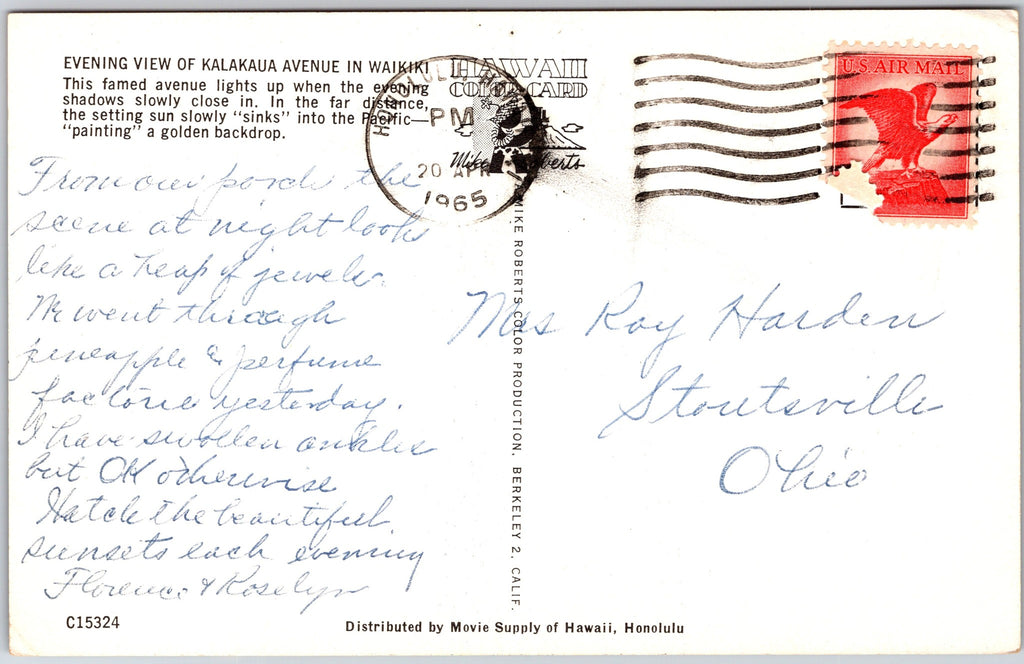 EVENING VIEW OF KALAKAUA AVENUE IN WAIKIKI
This famed avenue lights up when the evening
shadows slowly close in. In the far distance,
the setting sun slowly "sinks" into the Pacific—
"painting" a golden backdrop.
HAWAII
COLOR CARD
Mike Roberts
HONOLULU, HAWAII
PM
20 APR
1965
U.S. AIR MAIL
From our porch the
scene at night looks
like a heap of jewels.
We went through
pineapple & perfume
factories yesterday.
I have swollen ankles
but OK otherwise
Watch the beautiful
sunsets each evening
Florence & Roselyn
Mrs Roy Harden
Stoutsville
Ohio
MIKE ROBERTS COLOR PRODUCTION, BERKELEY 2, CALIF.
C15324
Distributed by Movie Supply of Hawaii, Honolulu